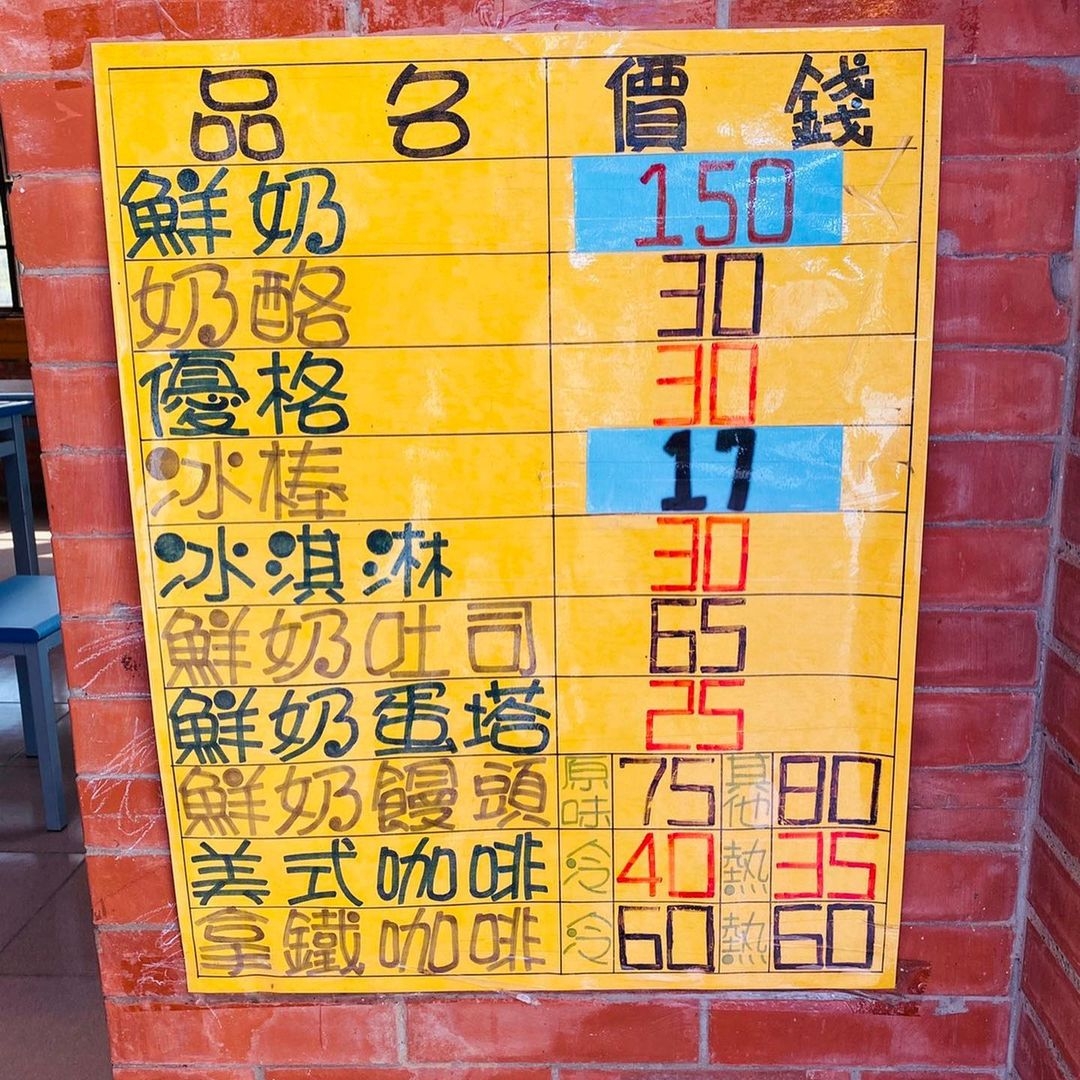 品名 價錢
鮮奶 150
奶酪 30
優格 30
冰棒 17
冰淇淋 30
鮮奶吐司 65
鮮奶蛋塔 25
鮮奶饅頭 原味 75 其他 80
美式咖啡 冷 40 熱 35
拿鐵咖啡 冷 60 熱 60